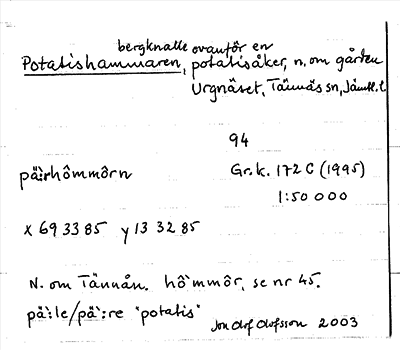 bergknalle ovanför en
Potatishammaren, potatisåker, n. om gården
Urgnäset, Tännäs sn, Jämtl. l
94
pä̀:rhômmôrn Gr.k. 172 C (1995)
1:50 000
x 69 33 85 y 13 32 85
N. om Tännån. hô`mmôr, se nr 45.
pä`:le/pä`:re "potatis"
Jon Olof Olofsson 2003